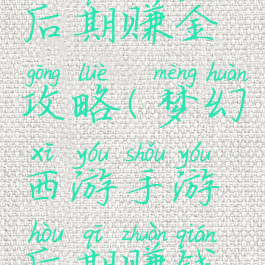 后期赚金
gōng lüè mèng huàn
攻略(梦幻
xī yóu shǒu yóu
西游手游
hòu qī zhuàn qián
后期赚钱